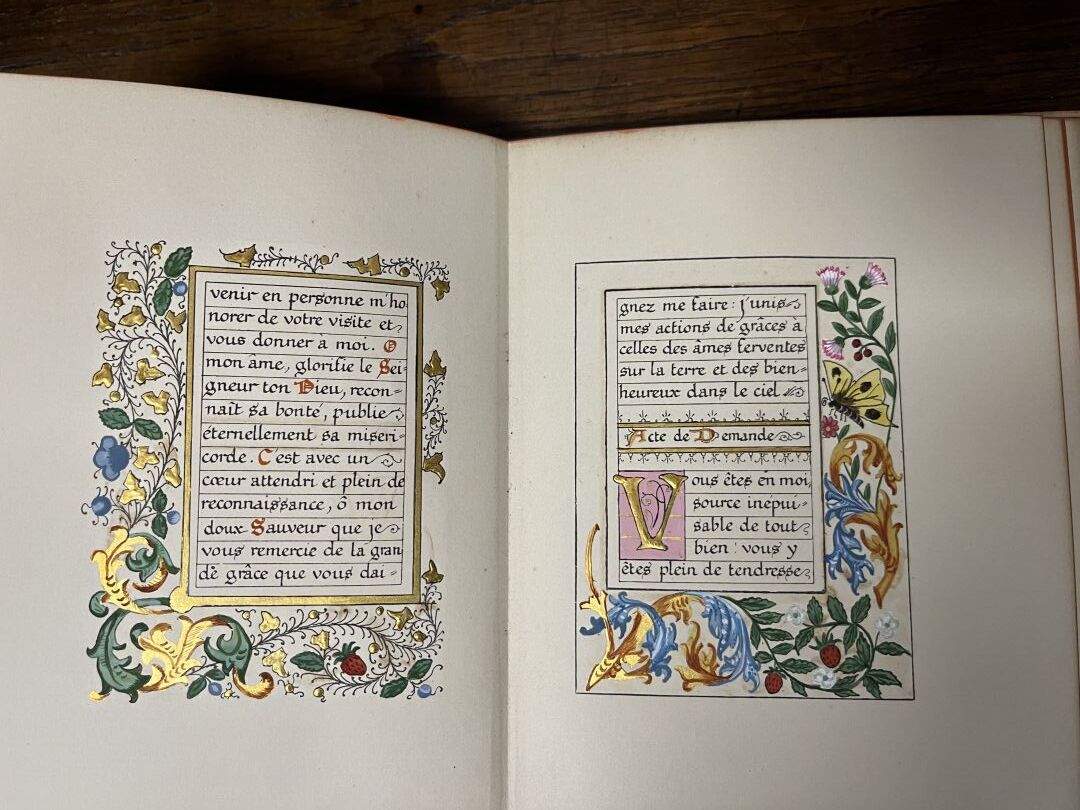 venir en personne m'ho
norer de votre visite et
vous donner à moi. O
mon âme, glorifie le Sei-
gneur ton Dieu, recon-
naît sa bonté, publie
éternellement sa miseri-
corde. C'est avec un
cœur attendri et plein de
reconnaissance, ô mon
doux Sauveur que je
vous remercie de la gran
de grâce que vous dai-
gnez me faire : j'unis
mes actions de grâces à
celles des âmes ferventes
sur la terre et des bien-
heureux dans le ciel.
Acte de Demande
Vous êtes en moi,
source inépui-
sable de tout
bien : vous y
êtes plein de tendresse